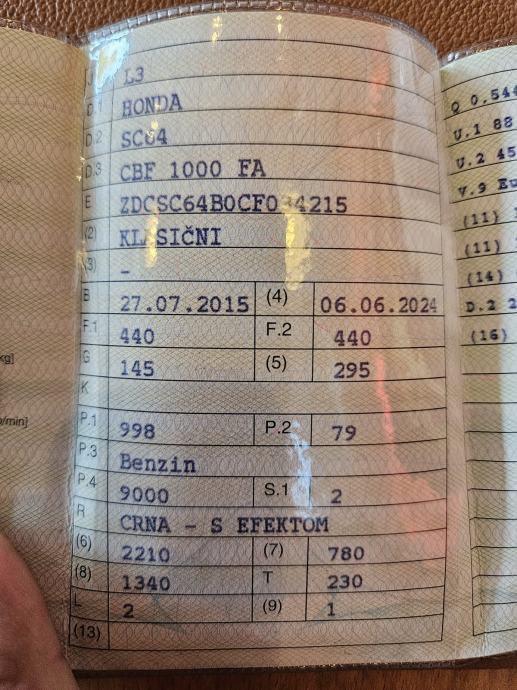 J L3
D.1 HONDA
D.2 SC64
D.3 CBF 1000 FA
E
(2) KLASIČNI
(3) –
B 27.07.2015 (4) 06.06.2024
F.1 440 F.2 440
G 145 (5) 295
K
P.1 998 P.2 79
P.3 Benzin
P.4 9000 S.1 2
R CRNA – S EFEKTOM
(6) 2210 (7) 780
(8) 1340 T 230
L 2 (9) 1
(13)
kg]
/min]
Q 0.544
U.1 88
U.2 45
V.9 Eu
(11)
(11)
(14)
D.2 2
(16)